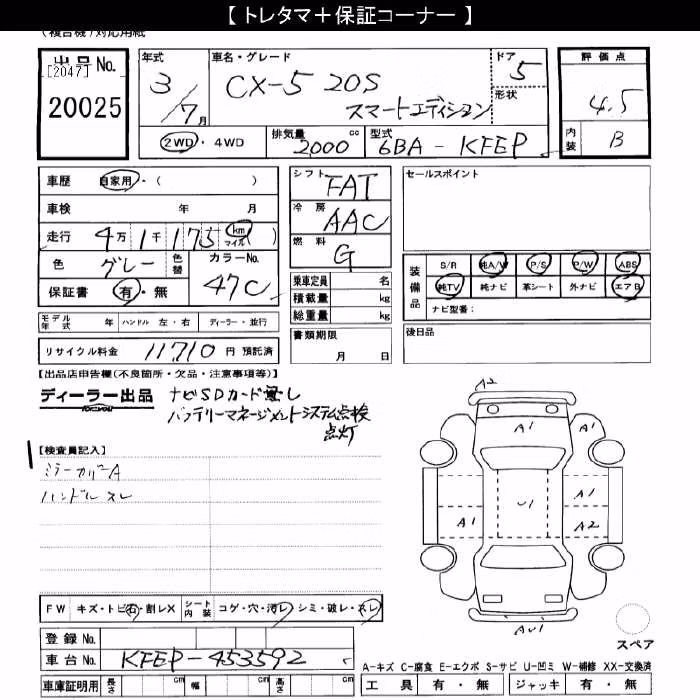 【 トレタマ＋保証コーナー 】
(複合機)対応用紙
出品No. [2047] 20025
年式 3/7月
車名・グレード CX-5 20S スマートエディション
ドア 5
形状
評価点 4.5
内装 B
2WD・4WD
排気量 2000 cc
型式 6BA - KFEP
車歴 自家用・( )
車検 年 月
走行 4万1千175 km マイル( )
色 グレー 色替 カラーNo. 47C
保証書 有・無
シフト FAT
冷房 AAC
燃料 G
乗車定員 名
積載量 kg
総重量 kg
セールスポイント
装備品 S/R 純A/W P/S P/W ABS
純TV 純ナビ 革シート 外ナビ エアB
ナビ型番：
モデル年式 年 ハンドル 左・右 ディーラー・並行
書類期限 月 日
後日品
リサイクル料金 11710 円 預託済
【出品店申告欄(不良箇所・欠品・注意事項等)】
ディーラー出品 ナビSDカード無し
バッテリーマネージメントシステム点検
点灯
【検査員記入】
ミラーカバーA
ハンドルスレ
A2
A1 A1
A1 U1 A1
A2
AU1
スペア
FW キズ・トビ石・割レX シート内装 コゲ・穴・汚レ シミ・破レ・スレ
登録No.
車台No. KFEP-453592
A-キズ C-腐食 E-エクボ S-サビ U-凹ミ W-補修 XX-交換済
車庫証明用 長さ cm 幅 cm 高さ cm
工具 有・無 ジャッキ 有・無